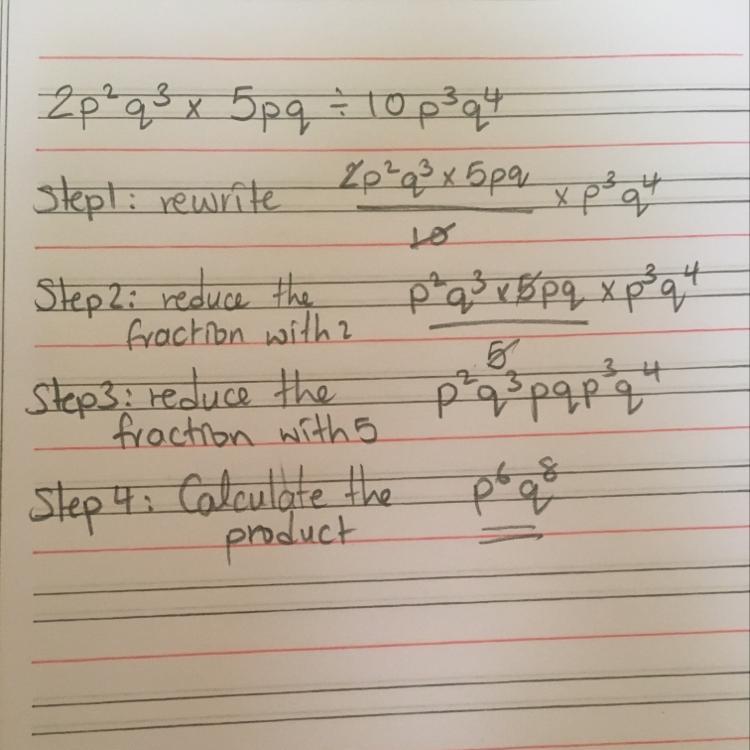 2p²q³ x 5pq ÷ 10p³q⁴
Step1: rewrite 2p²q³ x 5pq / 10 x p³q⁴
Step2: reduce the fraction with 2 p²q³ x 5pq / 5 x p³q⁴
Step3: reduce the fraction with 5 p²q³pqp³q⁴
Step 4: Calculate the product p⁶q⁸